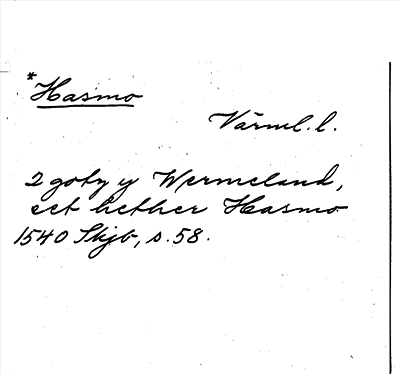 *Hasmo
Värml. l.
2 gotz y Wermeland,
eet hether Hasmo
1540 Skjb, s. 58.